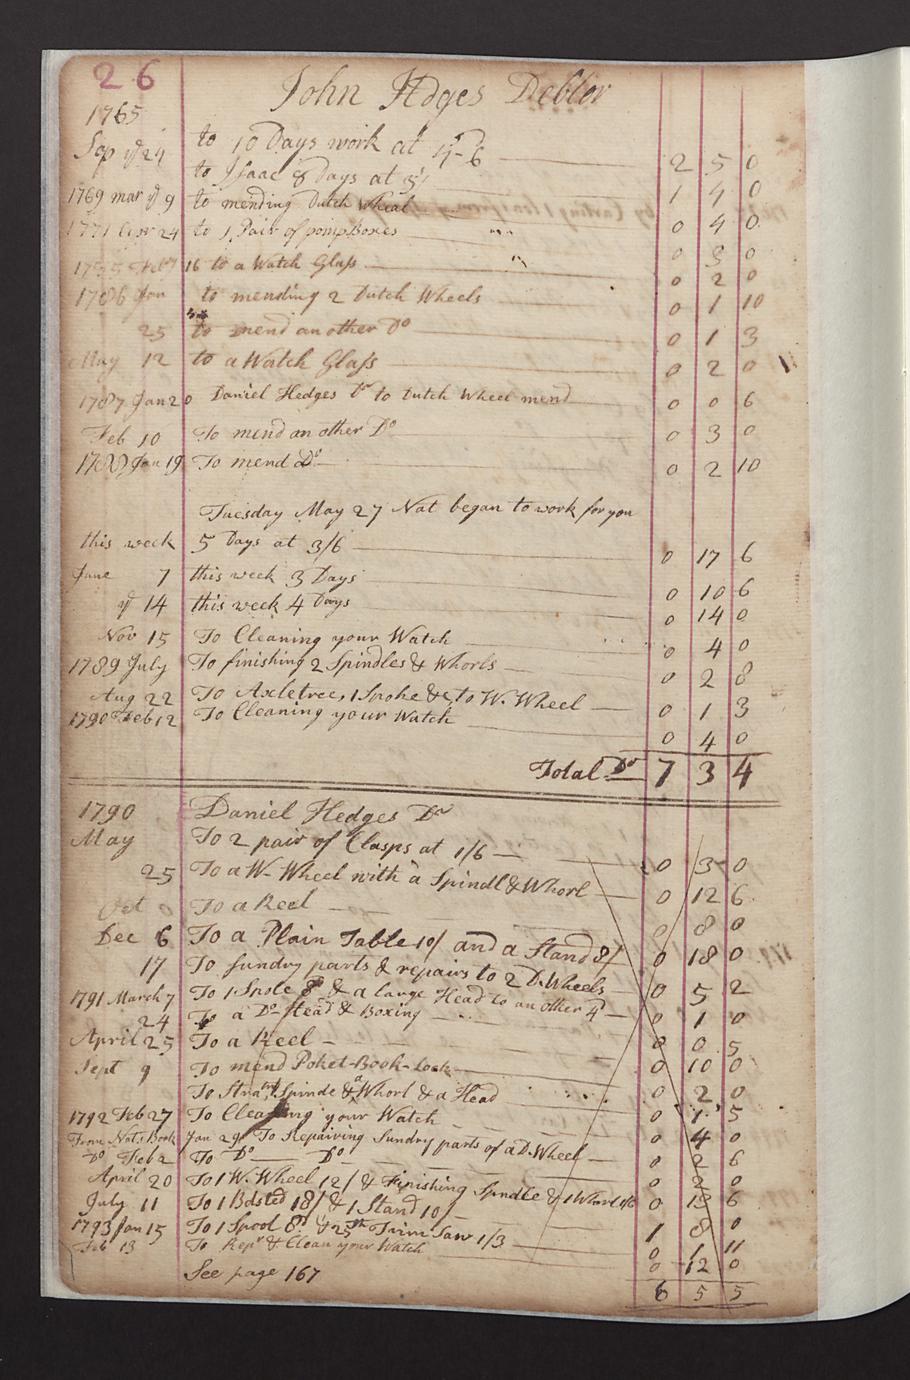 26
John Hdges Debtor
1765
Sep ye 24 to 10 Days work at 4-6 2 5 0
to Isaac 8 Days at 3/ 1 4 0
1769 mar ye 9 to mending Dutch Wheal 0 4 0
1771 24 to 1 Pair of pomp Boxes 0 3 0
Feby 16 to a Watch Glass 0 2 0
1786 Jan to mending 2 Dutch Wheels 0 1 10
25 to mend an other Do 0 1 3
May 12 to a Watch Glass 0 2 0
1787 Jan 20 Daniel Hedges Dr to Dutch Wheel mend 0 0 6
Feb 10 To mend an other Do 0 3 0
1788 Jan 19 To mend Do 0 2 10
Tuesday May 27 Nat began to work for you
this week 5 Days at 3/6 0 17 6
June 7 this week 3 Days 0 10 6
ye 14 this week 4 Days 0 14 0
Nov 15 To Cleaning your Watch 0 4 0
1789 July To finishing 2 Spindles & Whorls 0 2 8
Aug 22 To Axletree, 1 Spoke &c to W. Wheel 0 1 3
1790 Feb 12 To Cleaning your Watch 0 4 0
Total Do 7 3 4
1790 Daniel Hedges Dr
May To 2 pair of Clasps at 1/6 0 3 0
25 To a W- Wheel with a Spindl & Whorl 0 12 6
Oct To a Reel 0 8 0
Dec 6 To a Plain Table 10/ and a Stand 8/ 0 18 0
17 To Sundry parts & repairs to 2 D. Wheels 0 5 2
1791 March 7 To 1 Spole 8d & a large Head to an other 4d 0 1 0
24 To a Do Head & Boxing 0 0 5
April 25 To a Reel 0 10 0
Sept 9 To mend Poket-Book-Lock 0 2 0
To Spinde & Whorl & a Head 0 1 5
1792 Feb 27 To Cleaning your Watch 0 4 0
From Nat's Book Jan 29 To Repairing Sundry parts of a D. Wheel 0 2 6
Do Feb 2 To Do Do 0 2 0
April 20 To 1 W. Wheel 12/ & Finishing Spindle & 1 Whorl 1/6 0 13 6
July 11 To 1 Bdsted 18/ & 1 Stand 10/ 1 8 0
1793 Jan 15 To 1 Spool 8d & 25th Trim Saw 1/3 0 1 11
Feb 13 To Repr & Clean your Watch 0 12 0
See page 167
6 5 5